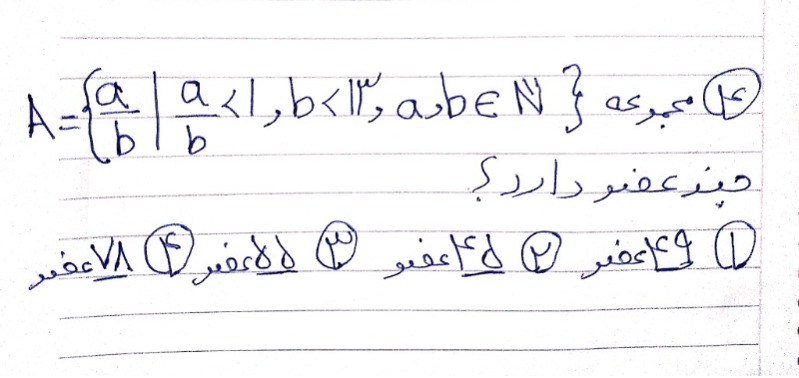 ۴) مجموعه A={a/b | a/b<1 و b<۱۳ و a,b∈N}
چند عضو دارد؟
۱) ۴۹ عضو ۲) ۴۵ عضو ۳) ۵۵ عضو ۴) ۷۸ عضو